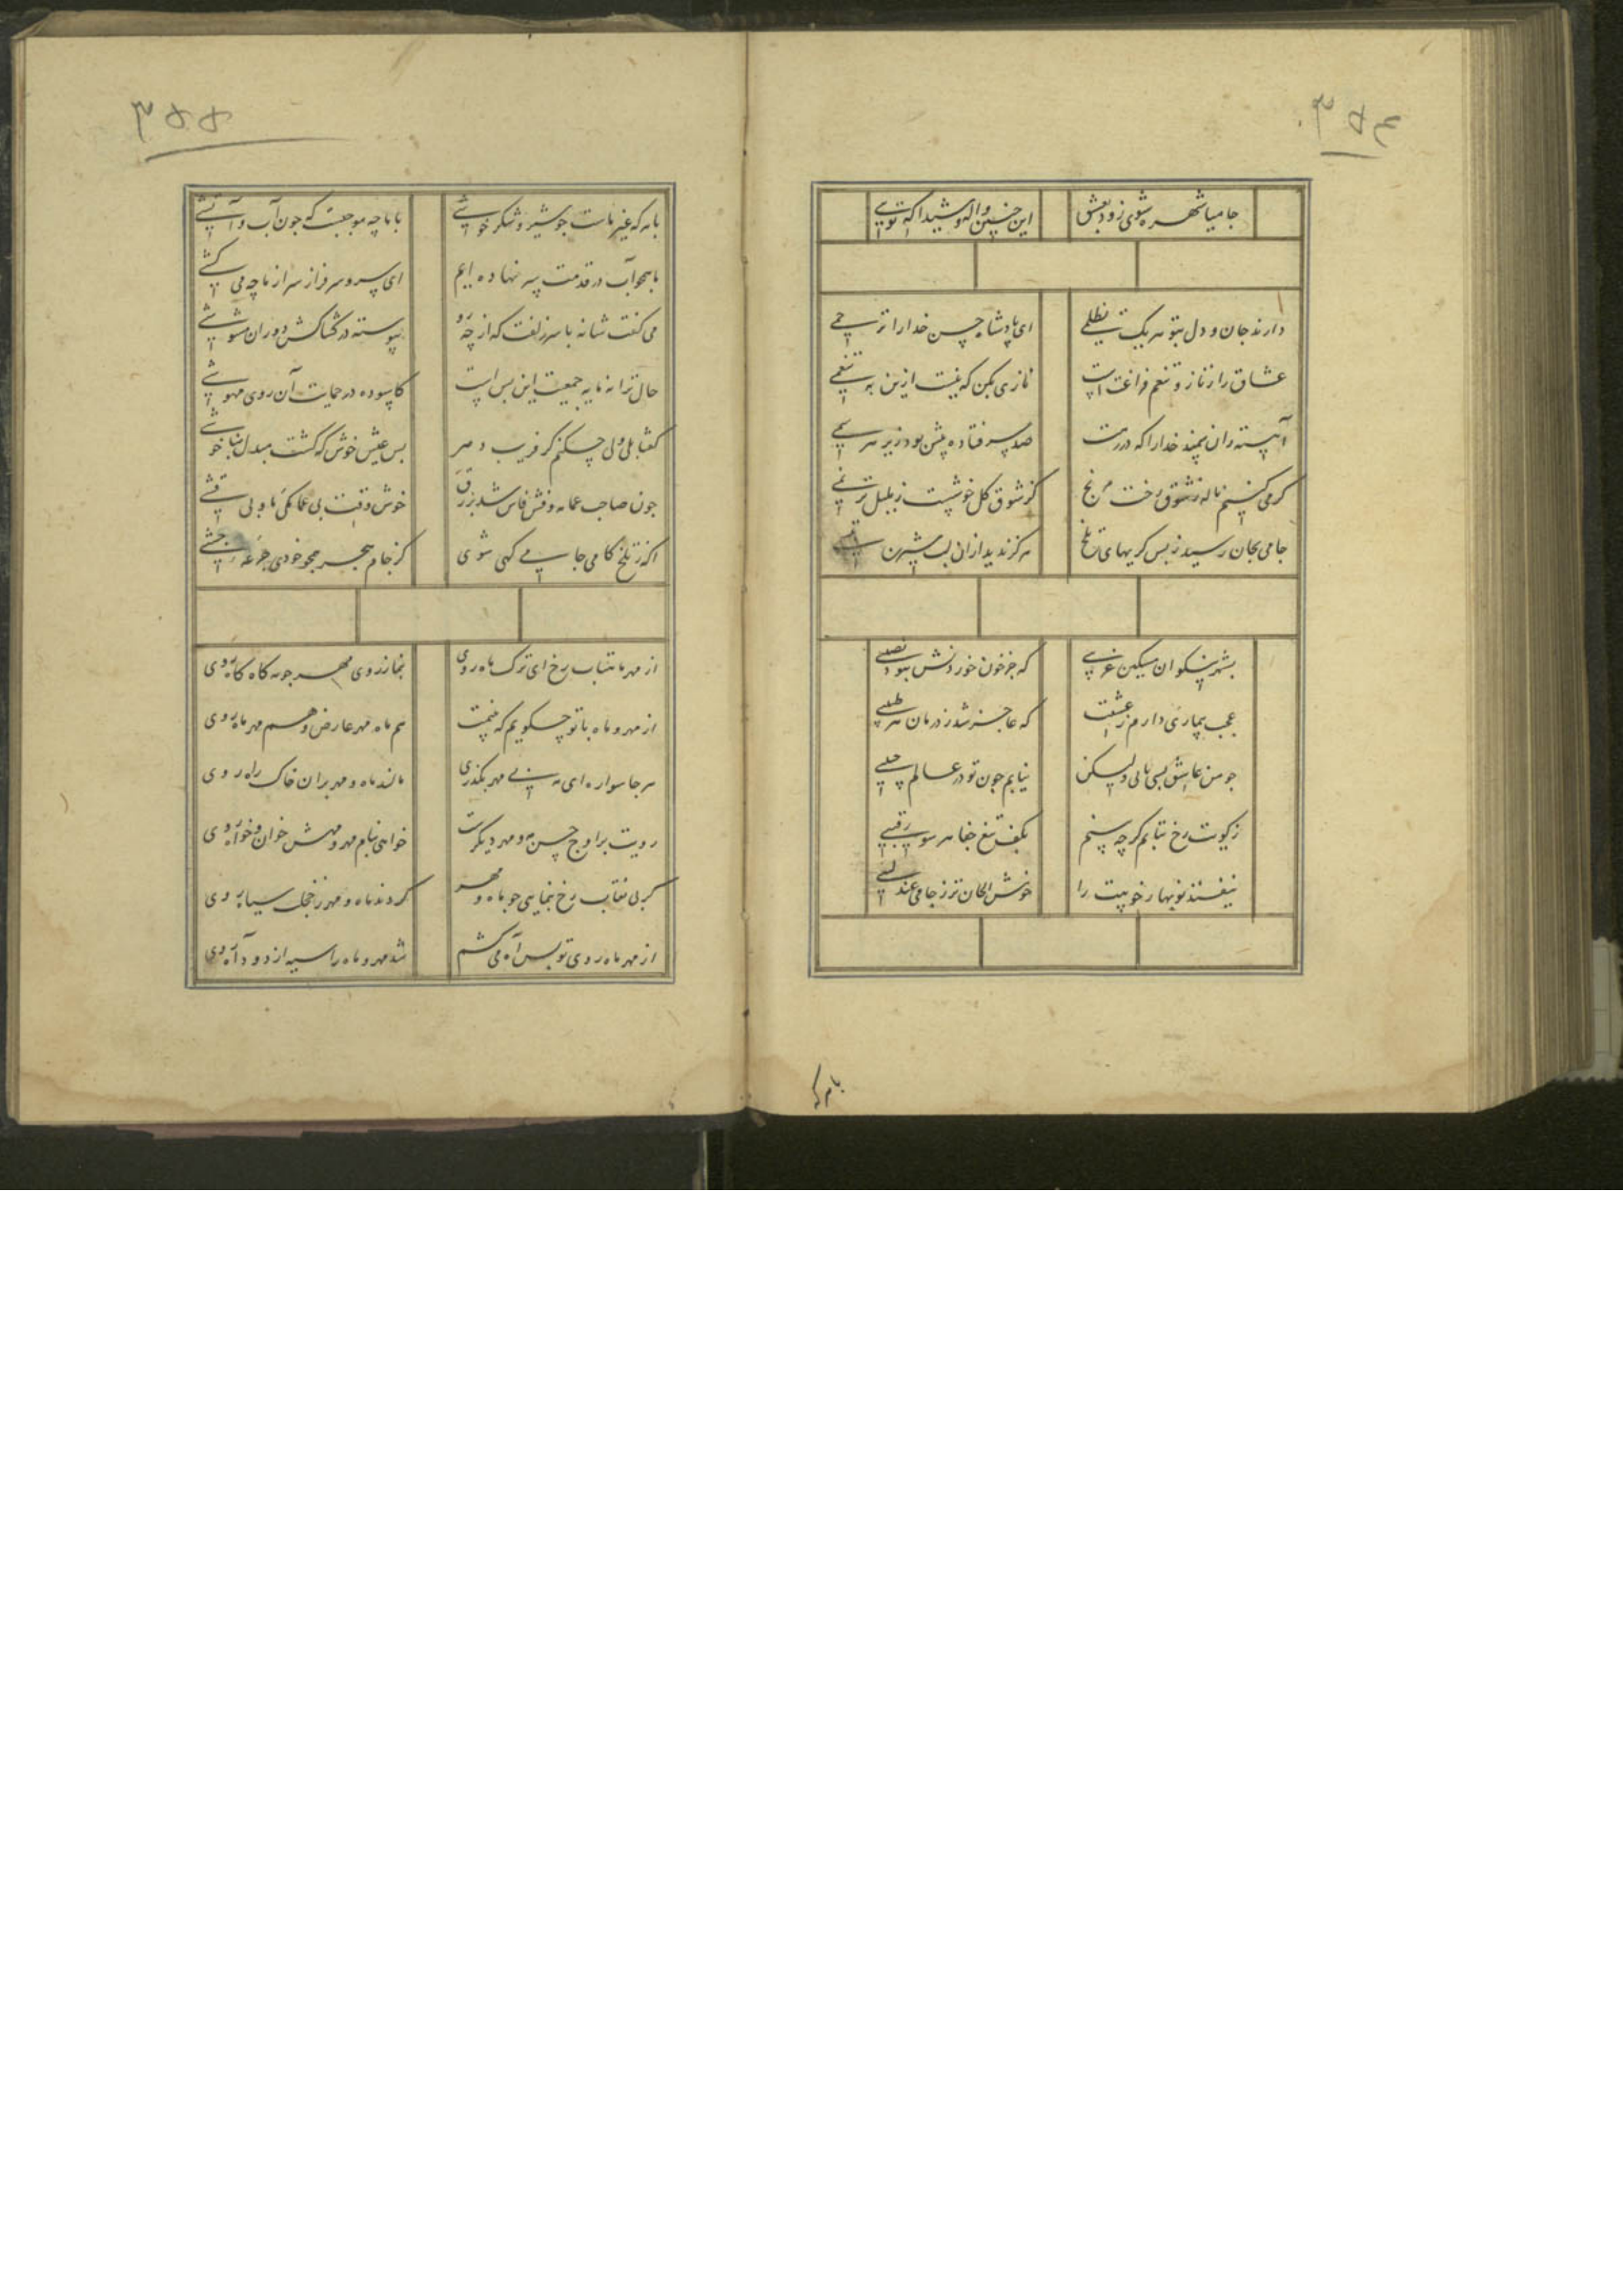 ۳۵۴
جامیا شهره شوی زود بعشق
این چنین واله و شیدا که تویی
دارند جان و دل بتو هریک تظلمی
ای پادشاه حسن خدا را ترحمی
عشاق را ز ناز و تنعم فراغت است
نازی بکن که نیست ازین به تنعمی
آهسته ران سمند خدا را که در رهت
صد سر فتاده پیش بود زیر هر سمی
کر می کنیم ناله ز شوق رخت مرنج
کز شوق کل خوشست ز بلبل ترنمی
جامی بجان رسید ز بس کریهای تلخ
هرکز ندید از ان لب شیرین
بشهر نیکوان مسکین غریبی
که جز خون خوردنش نبود نصیبی
عجب بیماری دارم ز عشقت
که عاجز شد ز درمان هر طبیبی
جو من عاشق بسی یابی ولیکن
نیابم جون تو در عالم حبیبی
ز کویت رخ نتابم کرچه بینم
بکف تیغ جفا هر سو رقیبی
نیفتد نوبهار خوبیت را
خوش الحان تر ز جامی عندلیبی
بام‌که
۳۵۵
با هرکه غیر ماست جو شیر و شکر خوشی
با ما چه موجبست که جون آب و آتشی
ما همجو آب در قدمت سر نهاده ایم
ای سرو سرفراز سر از ما چه می کشی
می کفت شانه با سر زلفت که از چه رو
پیوسته در کشاکش دوران مشوشی
حال ترا نه مایه جمعیت این بس است
کاسوده در حمایت آن روی مهوشی
کفتا بلی ولی چکنم کز فریب دهر
بس عیش خوش که کشت مبدل بناخوشی
جون صاحب عمامه و فش فاش شد بزرق
خوش وقت بی عمامکی ما و بی فشی
اکه ز تلخ کامی جامی کهی شوی
کز جام هجر همجو خودی جرعه جشی
از مهر ما متاب رخ ای ترک ماه روی
بنما ز روی مهر جو مه کاه کاه روی
از مهر و ماه با تو چکویم که نیست
هم ماه مهر عارض و هم مهر ماه روی
هر جا سواره ای مه بی مهر بکذری
مالند ماه و مهر بران خاک راه روی
رویت بر اوج حسن مه و مهر دیکرست
خواهی بنام مهر و مهش خوان و خواه روی
کر بی نقاب رخ بنمایی جو ماه و مهر
کردند ماه و مهر ز خجلت سیاه روی
از مهر ماه روی تو بس آه می کشم
شد مهر و ماه را سیه از دود آه روی